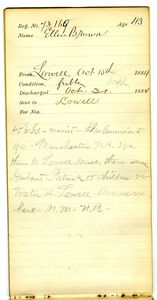 Reg. No. 43,169 Age 43
Name Ellen Brown
From Lowell Oct 13th 1881
Condition, feeble
Discharged Oct. 21 188
Sent to Lowell
For No.
45 b d - married - In America 5
yrs - Manchester N.H. 3 yrs,
then to Lowell Mass, there since
Husband Patrick & children on
Water St. Lowell -
here - N. M. - N. B. -